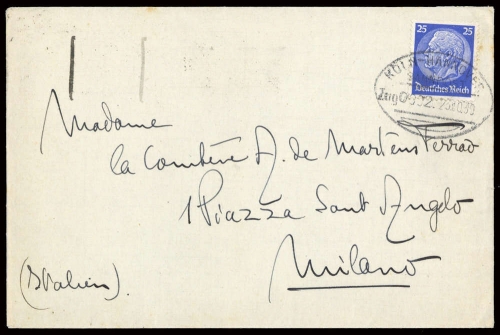 25 25
Deutsches Reich
KÖLN
Zug
Madame
la Comtesse A. de Martens Ferrao
1 Piazza Sant Angelo
Milano
(Italien).